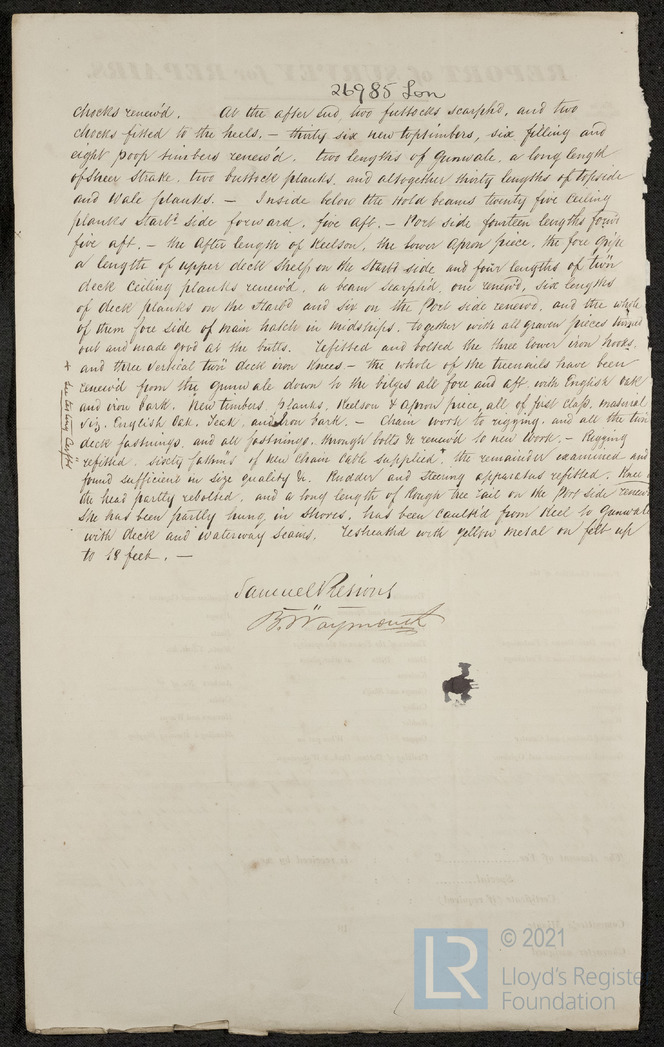 REPORT of SURVEY for REPAIRS.
26985 Lon
chocks renew'd. At the after End, two futtocks scarph'd, and two
chocks fitted to the heels, – thirty six new toptimbers, six filling and
eight poop timbers renew'd. two lengths of Gunwale, a long length
of sheer Strake, two buttock planks, and altogether thirty lengths of topside
and Wale planks. – Inside below the Hold beams twenty five Ceiling
planks Starbd side forward, five aft. – Port side fourteen lengths
five aft. – the After length of Keelson, the lower Apron piece, the fore gripe
a length of upper deck Shelf on the Starbd side and four lengths of twn
deck Ceiling planks renew'd, a beam Scarph'd, one renew'd, six lengths
of deck planks on the Starbd and six on the Port side renew'd, and the whole
of them fore side of main hatch in midships. together with all graven pieces
out and made good at the butts. Refitted and bolted the three lower iron hooks,
and three vertical twn deck iron Knees – the whole of the treenails have been
renew'd from the gunwale down to the bilges all fore and aft with English Oak
and iron bark. New timbers, planks, Keelson & Apron piece, all of first class material
viz. English Oak, Teak, and Iron bark. – Chain work to rigging, and all the twn
deck fastnings, and all fastnings, through bolts & renew'd to new work. – Rigging
refitted, sixty fathms of new Chain Cable supplied, the remainder examined and
found sufficient in size quality &c. Rudder and steering apparatus refitted. Knee
the head partly rebolted, and a long length of Rough tree rail on the Port side renew
She has been partly hung in Shores, has been caulk'd from Keel to Gunwale
with deck and waterway seams. Resheath'd with yellow metal on felt up
to 18 feet. –
+ See
Samuel
B. Waymouth
© 2021
LR
Lloyd's Registe
Foundation